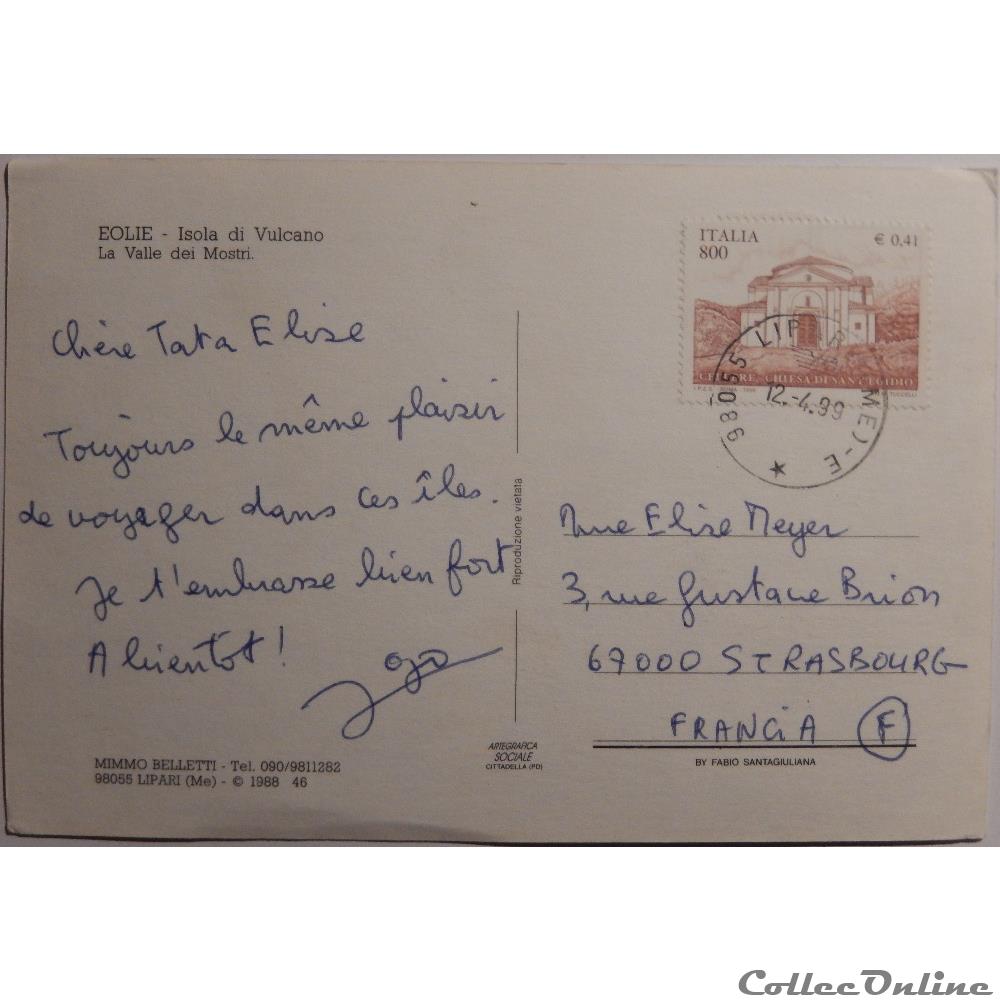 EOLIE - Isola di Vulcano
La Valle dei Mostri.
Chère Tata Elise
Toujours le même plaisir
de voyager dans ces îles.
Je t'embrasse bien fort
A bientôt !
MIMMO BELLETTI - Tel. 090/9811282
98055 LIPARI (Me) - © 1988 46
Riproduzione vietata
ARTEGRAFICA
SOCIALE
CITTADELLA (PD)
ITALIA
800
€ 0,41
CELLERE, CHIESA DI SANT'EGIDIO
I.P.Z.S. ROMA 1999
TUCCELLI
98055 LIPARI (ME) - E
12.-4.99
Mme Elise Meyer
3, rue Gustave Brion
67000 STRASBOURG
FRANCIA (F)
BY FABIO SANTAGIULIANA
CollecOnline